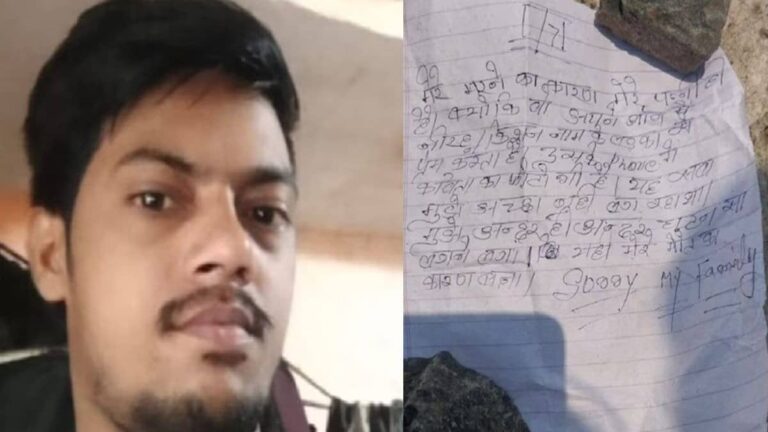 मेरे मरने का कारण मेरे पत्नी
है। क्योंकि वो अपने गांव
नाम के लड़का से
प्रेम करती है। phone में
का फोटो भी है। यह
मुझे अच्छा नहीं लग रहा था।
मुझे अन्दर ही अन्दर घुटन सा
लगने लगा। यही मेरे मौत का
कारण बना। Sorry My Family